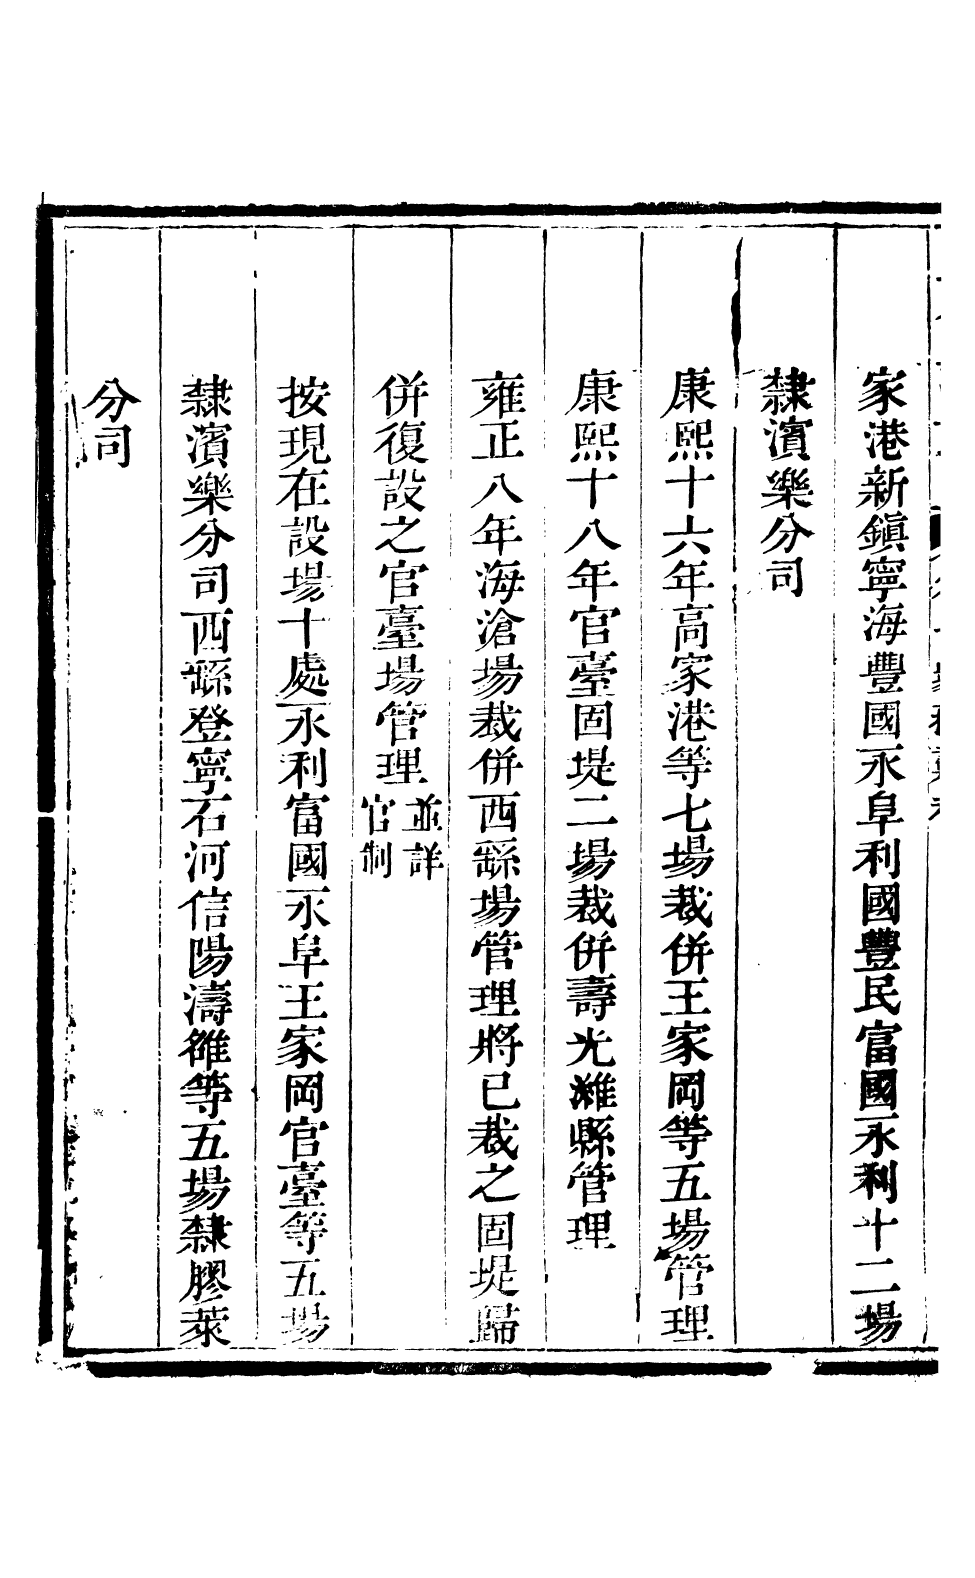 家港新鎮寧海豐國永阜利國豐民富國永利十二場
隸濱樂分司
康熙十六年高家港等七場裁併王家岡等五場管理
康熙十八年官臺固堤二場裁併壽光濰縣管理
雍正八年海滄場裁併西繇場管理將已裁之固堤歸
併復設之官臺場管理
並詳
官制
按現在設場十處永利富國永阜王家岡官臺等五場
隸濱樂分司西繇登寧石河信陽濤雒等五場隸膠萊
分司